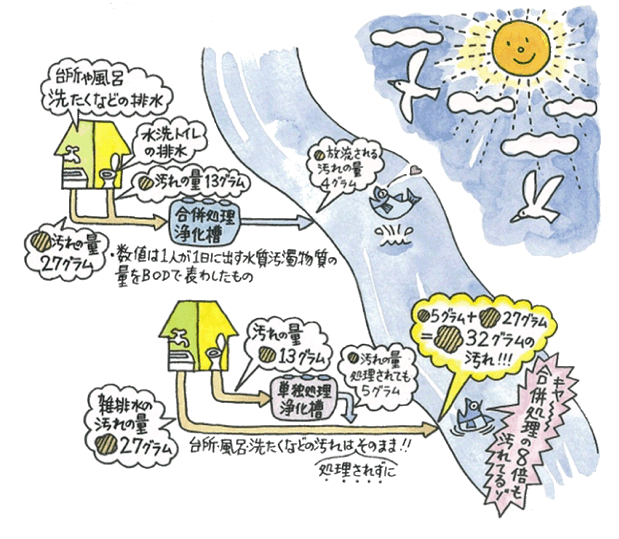 台所や風呂
洗たくなどの排水
水洗トイレ
の排水
汚れの量13グラム
汚れの量
27グラム
合併処理
浄化槽
放流される
汚れの量
4グラム
・数値は1人が1日に出す水質汚濁物質の
量をBODで表わしたもの
汚れの量
13グラム
単独処理
浄化槽
汚れの量
処理されても
5グラム
5グラム+27グラム
=32グラムの
汚れ!!!
雑排水の
汚れの量
27グラム
台所・風呂・洗たくなどの汚れはそのまま!!
処理されずに
キャー
合併処理の8倍も
汚れてるゾ